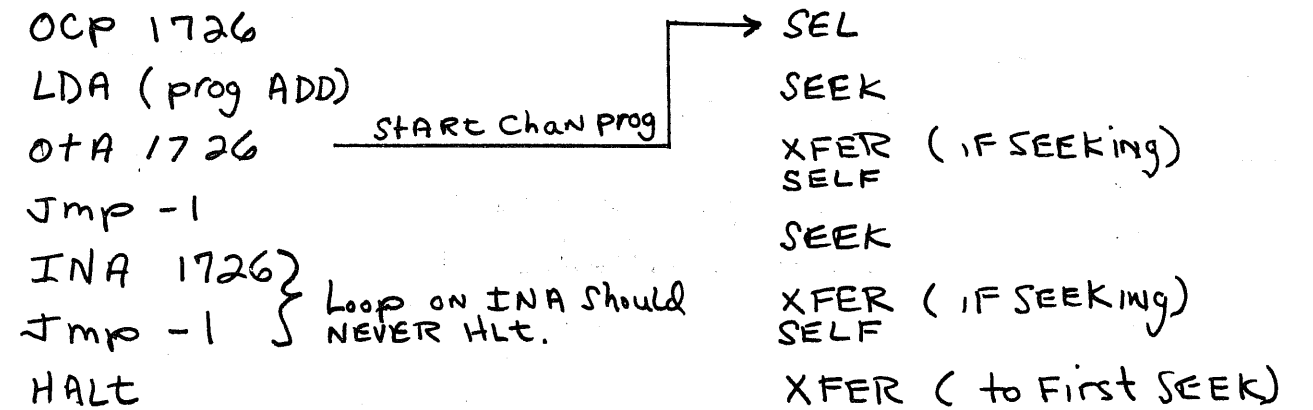 OCP 1726
LDA (prog ADD)
OtA 1726
Jmp -1
INA 1726
Jmp -1
HALt
StARt Chan prog
Loop ON INA Should
NEVER HLt.
SEL
SEEK
XFER (IF SEEKing)
SELF
SEEK
XFER (IF SEEKing)
SELF
XFER ( to First SEEK)